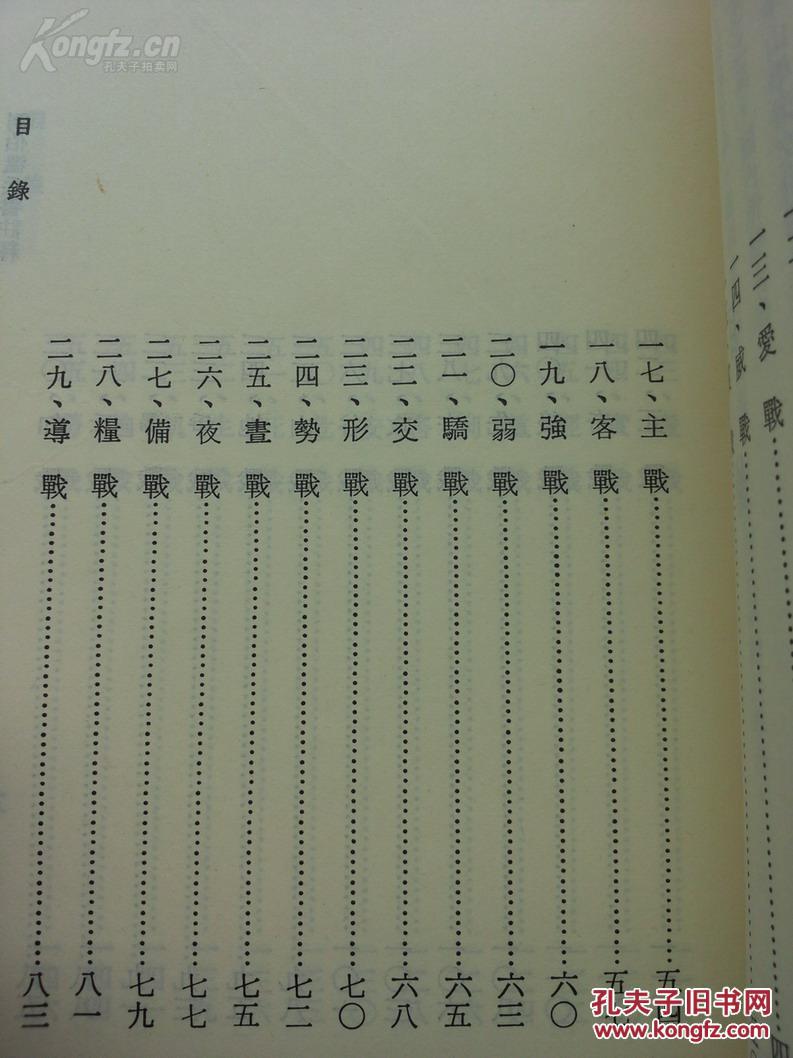 Kongfz.cn
孔夫子拍卖网
目錄
一三、愛戰
一四、威戰
一七、主戰……五四
一八、客戰……五七
一九、強戰……六〇
二〇、弱戰……六三
二一、驕戰……六五
二二、交戰……六八
二三、形戰……七〇
二四、勢戰……七二
二五、晝戰……七五
二六、夜戰……七七
二七、備戰……七九
二八、糧戰……八一
二九、導戰……八三
孔夫子旧书网
www.kongfz.com